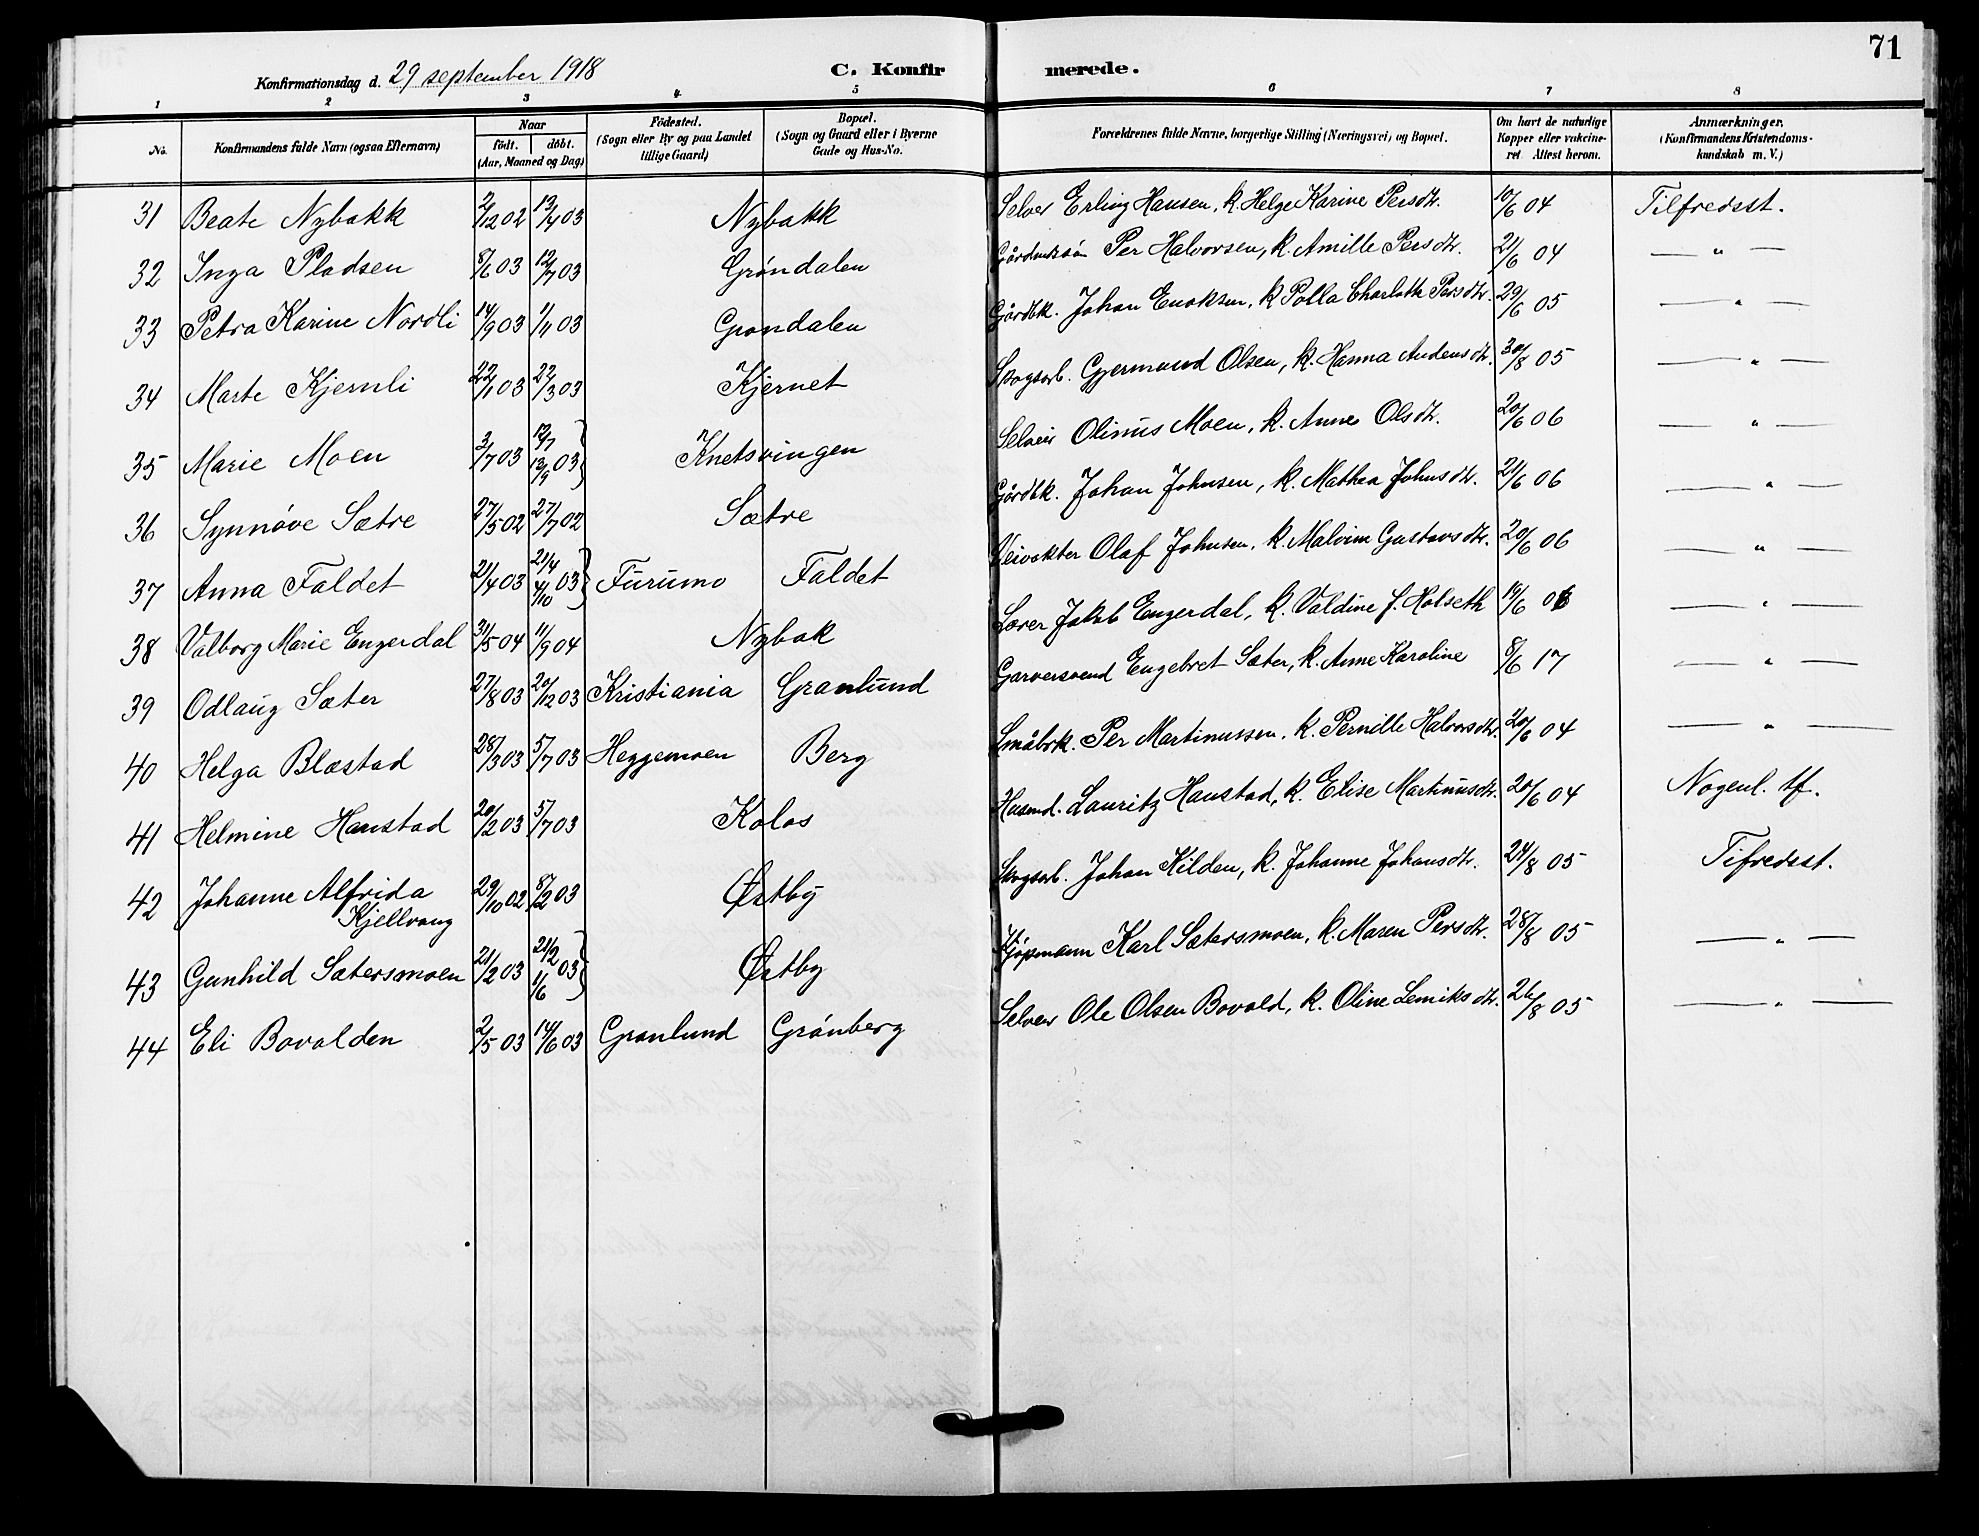 71
Konfirmationsdag d. 29 september 1918
C. Konfirmerede.
1 2 3 4 5 6 7 8
No. Konfirmandens fulde Navn (ogsaa Efternavn) Naar født. døbt. (Aar, Maaned og Dag) Födested. (Sogn eller By og paa Landet tillige Gaard) Bopæl. (Sogn og Gaard eller i Byerne Gade og Hus-No. Forældrenes fulde Navne, borgerlige Stilling (Næringsvei) og Bopæl. Om havt de naturlige Kopper eller vakcineret Attest herom. Anmærkninger. (Konfirmandens Kristendomskundskab m. V.)
31 Beate Nybakk 2/12 02 13/4 03 Nybakk Selveier Erling Hansen, k. Helge Karine Persdtr. 10/6 04 Tilfredsst.
32 Inga Pladsen 8/6 03 12/7 03 Gröndalen Per Halvorsen, k. Amille Persdtr. 21/6 04 — " —
33 Petra Karine Nordli 14/9 03 1/11 03 Grøndalen Gårdbk. Johan Enoksen, k. Polla Charlotte Persdtr. 29/6 05 — " —
34 Marte Kjernli 22/1 03 22/3 03 Kjernet Skogsarb. Gjermund Olsen, k. Hanna Audensdtr. 30/8 05 — " —
35 Marie Moen 3/7 03 12/7 13/9 03 } Knetsvingen Selveier Olinus Moen, k. Anne Olsdtr. 20/6 06 — " —
36 Synnøve Sætre 27/5 02 27/7 02 Sætre Gårdbk. Johan Johnsen, k. Mathea Johnsdtr. 21/6 06 — " —
37 Anna Faldet 21/4 03 21/4 4/10 03 } Furumo Faldet Veivokter Olaf Johnsen, k. Malvine Gustavsdtr. 20/6 06 — " —
38 Valborg Marie Engerdal 31/5 04 11/9 04 Nybak Lærer Jakob Engerdal, k. Valdine f. Holseth 19/6 06 — " —
39 Odlaug Sæter 27/8 03 20/12 03 Kristiania Granlund Garversvend Engebret Sæter, k. Anne Karoline 8/6 17 — " —
40 Helga Blæstad 28/3 03 5/7 03 Heggemoen Berg Småbrk. Per Martinussen, k. Pernille Halvorsdtr. 20/6 04 — " —
41 Helmine Hanstad 20/2 03 5/7 03 Kolos Husmd. Lauritz Hanstad, k. Elise Martinusdtr. 20/6 04 Nogenl. tf.
42 Johanne Alfrida Kjellvang 29/10 02 8/2 03 Østby Skogsarb. Johan Kilden, k. Johanne Johansdtr. 24/8 05 Tifredsst.
43 Gunhild Sætersmoen 21/2 03 21/2 1/6 03 } Østby Kjøpmann Karl Sætersmoen, k. Maren Persdtr. 28/8 05 — " —
44 Eli Bovalden 2/5 03 14/6 03 Granlund Grönberg Selveier Ole Olsen Bovald, k. Oline Lemiksdtr. 26/8 05 — " —